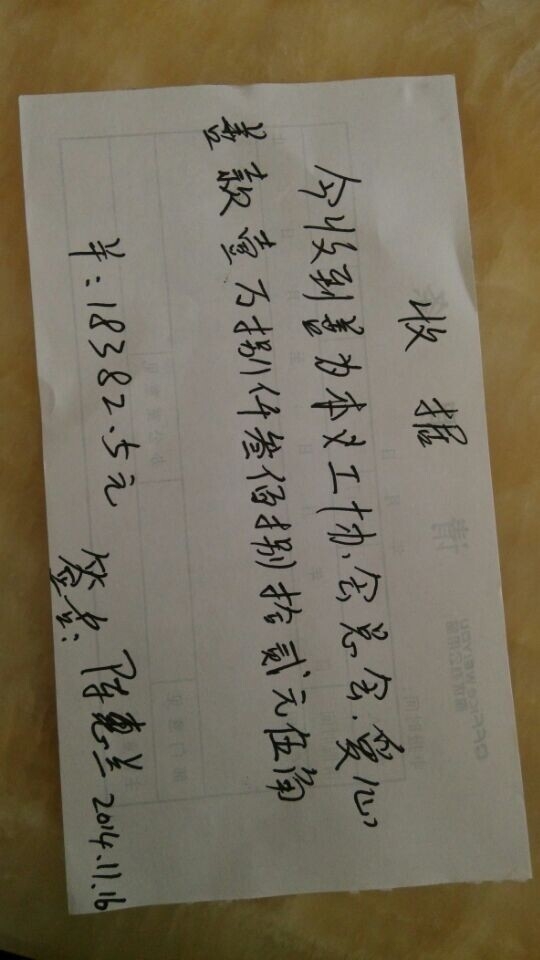 收据
今收到善为本义工协会总会爱心
善款壹万捌仟叁佰捌拾贰元伍角
半:18382.5元
签名:陈惠兰 2014.11.16